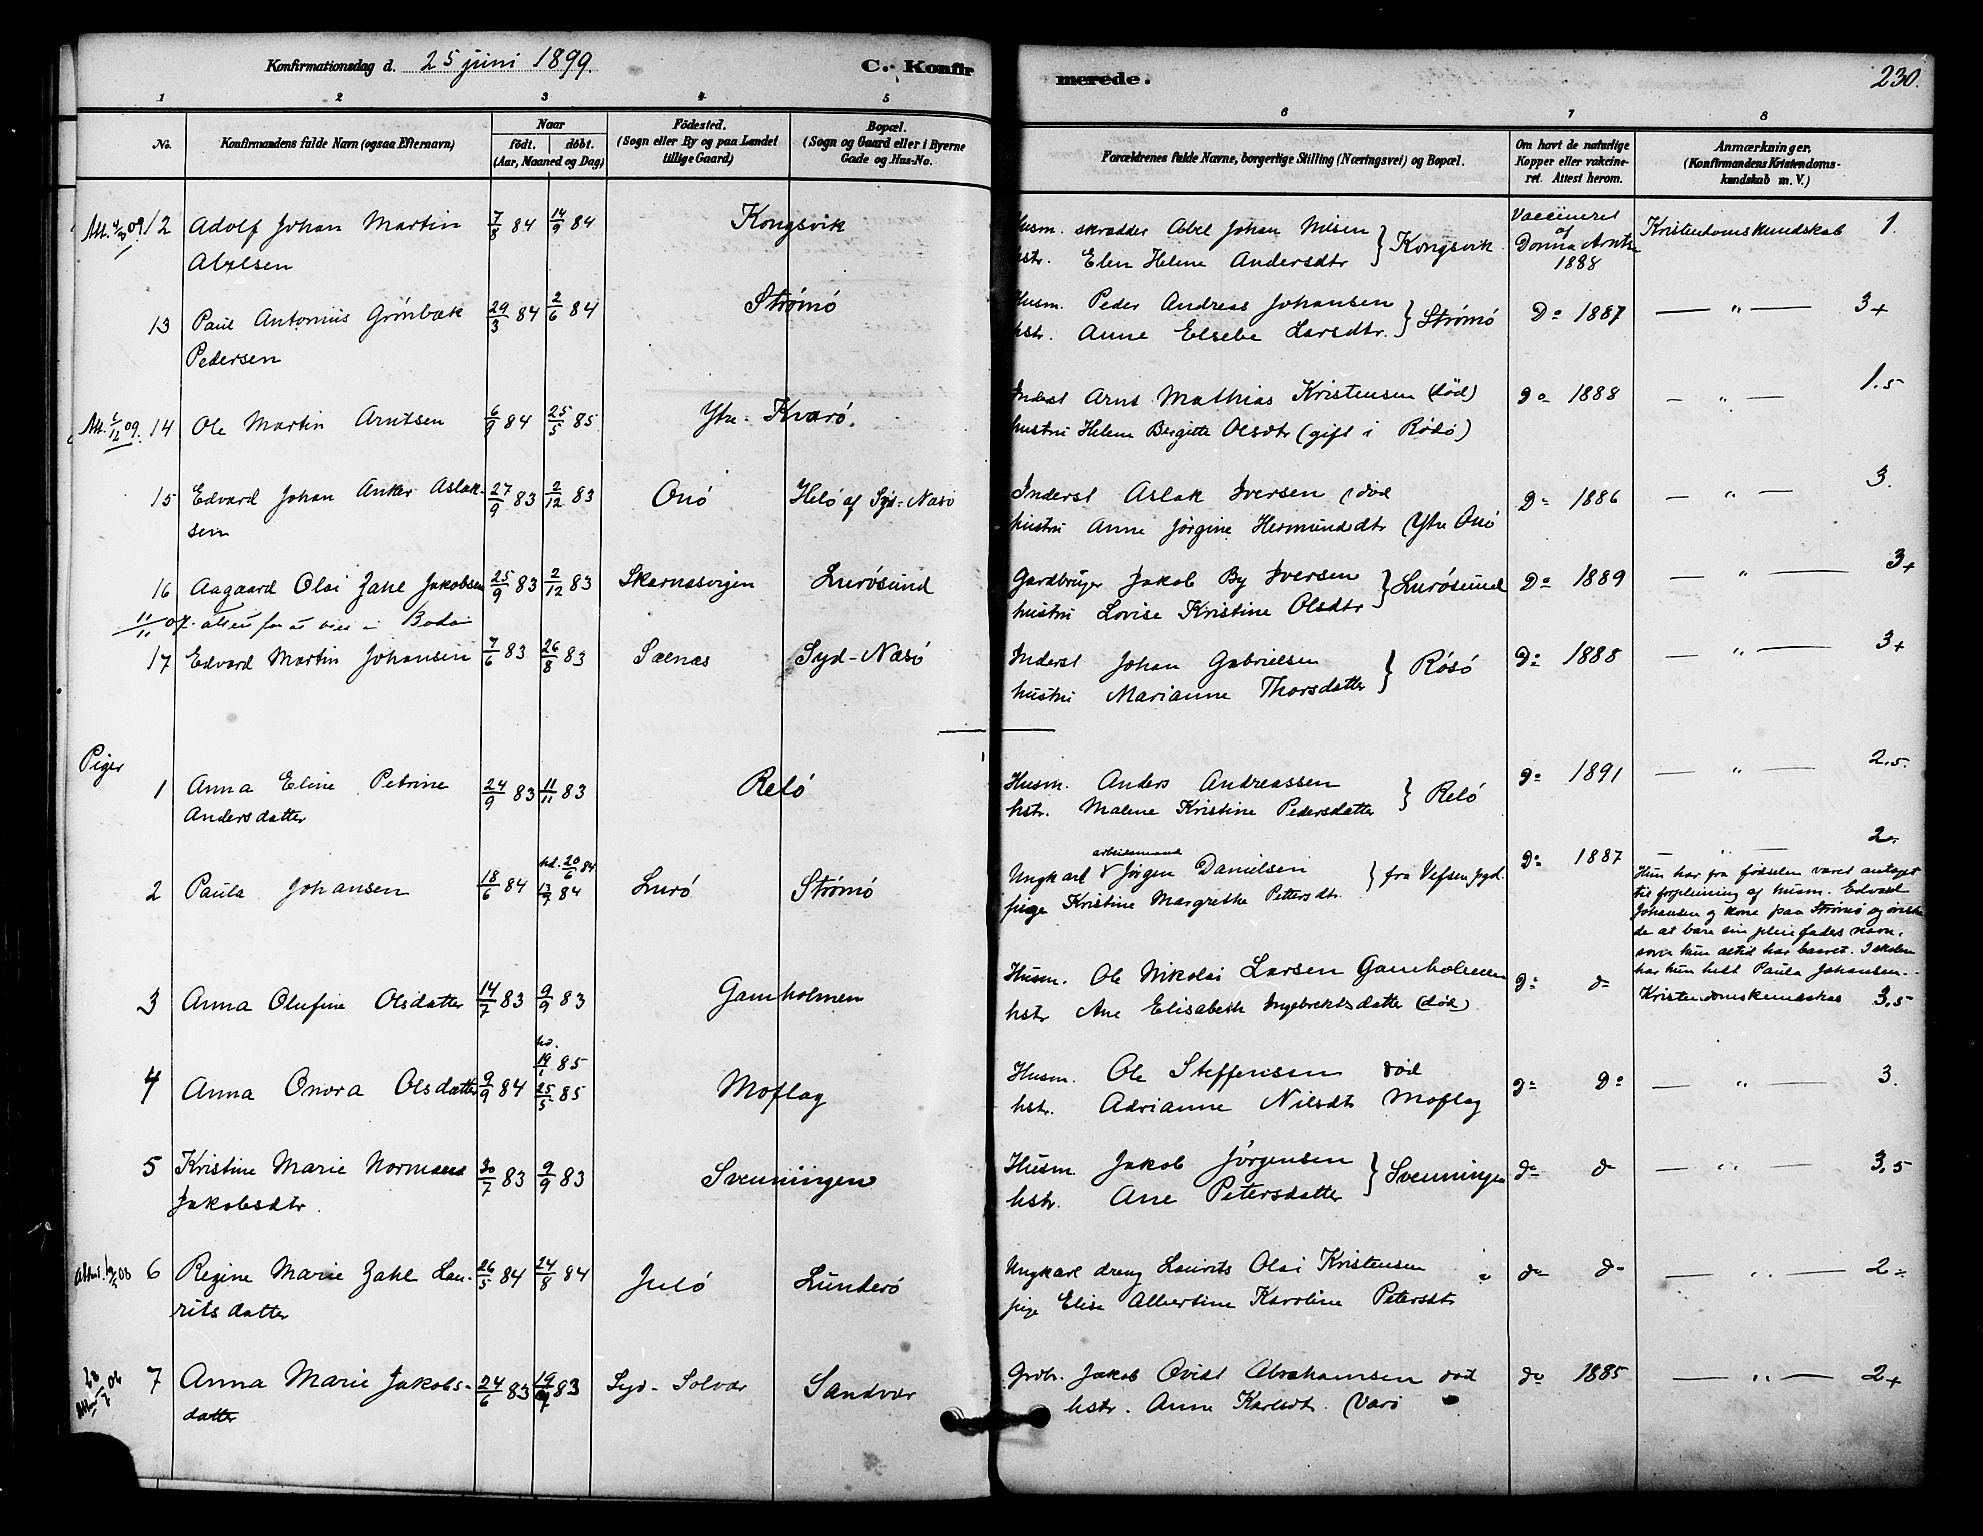 Konfirmationsdag d. 25 juni 1899. C. Konfirmerede. 230.
1 2 3 4 5 6 7 8
No. Konfirmandens fulde Navn (ogsaa Efternavn) Naar födt. döbt. (Aar, Maaned og Dag) Födested. (Sogn eller By og paa Landet tillige Gaard) Bopæl. (Sogn og Gaard eller i Byerne Gade og Hus-No. Forældrenes fulde Navne, borgerlige Stilling (Næringsvei) og Bopæl. Om havt de naturlige Kopper eller vakcineret. Attest herom. Anmærkninger. (Konfirmandens Kristendomskundskab m. V.)
12 Adolf Johan Martin 7/8 84 14/9 84 Kongsvik Husm. skrædder Abel Johan Nilsen } Kongsvik Vaccineret af Kristendomskundskab 1.
Abelsen hstr. Elen Helene Andersdtr Donna 1888
13 Paul Antonius Grönbæk 29/3 84 2/6 84 Strömö Husm. Peder Andreas Johansen } Strömö Do 1887 — " — 3+
Pedersen hstr. Anne Elsebe Larsdtr.
14 Ole Martin Arntsen 6/9 84 25/5 85 Ytre-Kvarö. Inderst Arnt Mathias Kristensen (död) Do 1888 — " — 1.5
hustru Helene Bergitte Olsdtr (gift i Rödö)
15 Edvard Johan Anker Aslak- 27/9 83 2/12 83 Onö Helö af Syd-Næsö Inderst Aslak Iversen (död Do 1886 — " — 3.
sen hustru Anne Jörgine Hermundsdtr (Ytre Onö
16 Aagaard Olai Zahl Jakobsen 25/9 83 2/12 83 Skarnæsvigen Luröesund Gardbruger Jakob By Iversen } Luröesund Do 1889 — " — 3+
11/11 07. attest for at Bodö hustru Lovise Kristine Olsdtr
17 Edvard Martin Johansen 7/6 83 26/8 83 Selnæs Syd-Næsö Inderst Johan Gabrielsen } Rösö Do 1888 — " — 3+
hustru Marianne Thorsdatter
Piger
1 Anna Eline Petrine 24/9 83 11/11 83 Relö Husm. Anders Andreassen } Relö Do 1891 — " — 2.5.
Andersdatter hstr. Malene Kristine Pedersdatter
2 Paula Johansen 18/6 84 hd. 20/6 84 13/7 84 Lurö Strömö Ungkarl arbeidsmand Jörgen Danielsen } fra Vefsen pgd. Do 1887 — " — 2.
pige Kristine Margrethe Pettersdtr.
Hun har fra födselen været antaget
til forpleining af husm. Edvard
Johansen og kone paa Strömö og önske
de at bære sin pleiefaders navn,
som hun altid har baaret. I skolen
har hun hedt Paula Johansen.
3 Anna Olufine Olsdatter 14/7 83 9/9 83 Gamholmen Husm. Ole Nikolai Larsen Gamholmen Do d- Kristendomskundskab 3.5
hstr Ane Elisabeth Ingebrektsdatter (död)
4 Anna Onora Olsdatter 9/9 84 hd. 19/1 85 25/5 85 Moflag Husm. Ole Steffensen död Do Do — " — 3.
hstr. Adrianne Nilsdtr Moflag
5 Kristine Marie Normans 30/7 83 9/9 83 Svenningen Husm Jakob Jörgensen } Svenningen do d- — " — 3.5
Jakobsdtr. hstr. Ane Petersdatter
6 Regine Marie Zahl Lau- 26/5 84 24/8 84 Julö Lunderö Ungkarl dreng Laurits Olai Kristensen do d- — " — 2
ritsdatter pige Elise Albertine Karoline Petersdtr
7 Anna Marie Jakobs- 24/6 83 19/7 83 Syd-Solvær Sandvær Grdbr. Jakob Qvidt Abrahamsen död do 1885 — " — 2+
datter hstr. Anne Karlsdtr. (Varö